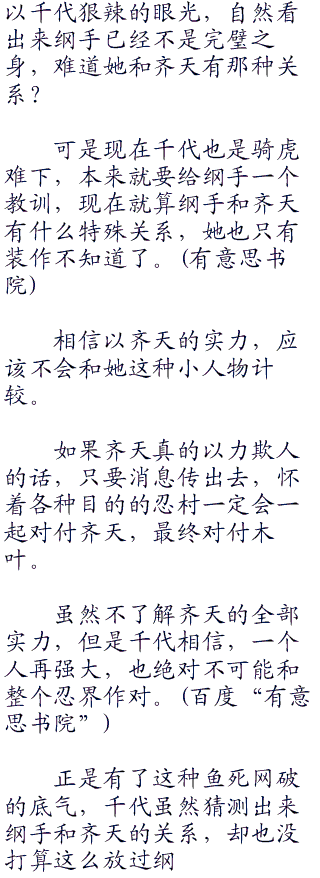 以千代狠辣的眼光，自然看
出来纲手已经不是完璧之
身，难道她和齐天有那种关
系？
可是现在千代也是骑虎
难下，本来就要给纲手一个
教训，现在就算纲手和齐天
有什么特殊关系，她也只有
装作不知道了。(有意思书
院)
相信以齐天的实力，应
该不会和她这种小人物计
较。
如果齐天真的以力欺人
的话，只要消息传出去，怀
着各种目的的忍村一定会一
起对付齐天，最终对付木
叶。
虽然不了解齐天的全部
实力，但是千代相信，一个
人再强大，也绝对不可能和
整个忍界作对。(百度“有意
思书院”)
正是有了这种鱼死网破
的底气，千代虽然猜测出来
纲手和齐天的关系，却也没
打算这么放过纲